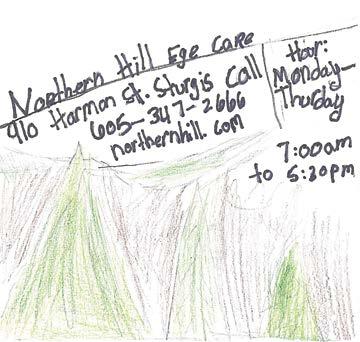 Northern Hill Eye Care
910 Harmon St. Sturgis Call
605-347-2666
northernhill.com
Hour:
Monday-
Thurday
7:00am
to 5:30pm